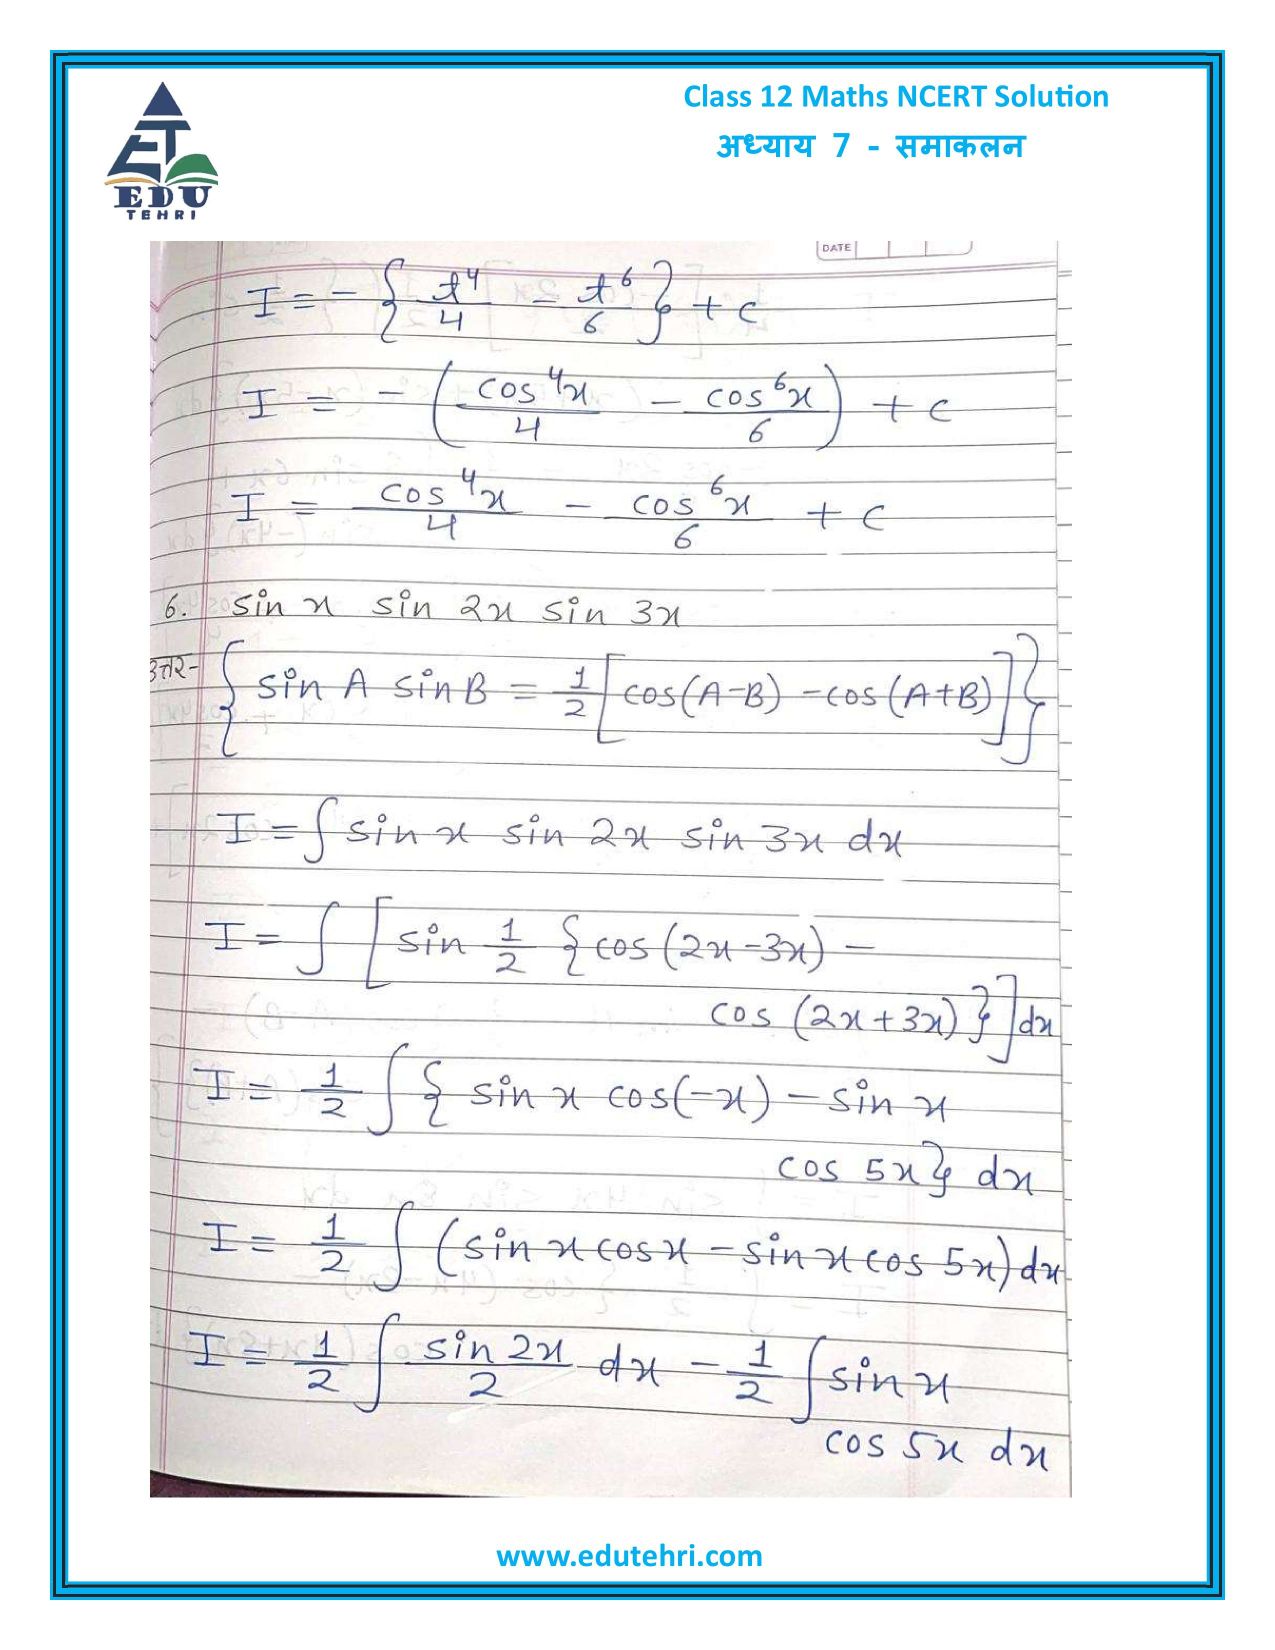 Class 12 Maths NCERT Solution
अध्याय 7 - समाकलन
EDU
TEHRI
DATE
I = - { t⁴/4 - t⁶/6 } + c
I = - ( cos⁴x/4 - cos⁶x/6 ) + c
I = cos⁴x/4 - cos⁶x/6 + c
6. sin x sin 2x sin 3x
उत्तर- { sin A sin B = 1/2 [ cos(A-B) - cos(A+B) ] }
I = ∫ sin x sin 2x sin 3x dx
I = ∫ [ sin 1/2 { cos (2x-3x) -
cos (2x+3x) } ] dx
I = 1/2 ∫ { sin x cos(-x) - sin x
cos 5x } dx
I = 1/2 ∫ (sin x cos x - sin x cos 5x) dx
I = 1/2 ∫ sin 2x/2 dx - 1/2 ∫ sin x
cos 5x dx
www.edutehri.com